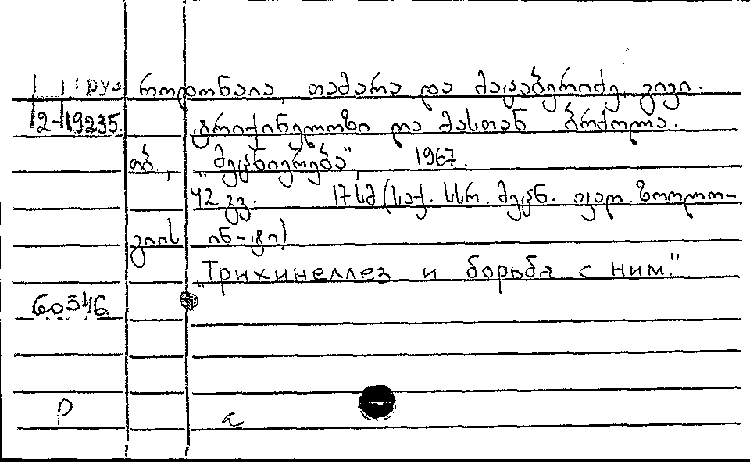 როდონაია, თამარა და მაყაბერიძე, გივი.
12-19235 ტრიქინელოზი და მასთან ბრძოლა.
თბ., "მეცნიერება", 1967.
42 გვ. 17 სმ (საქ. სსრ. მეცნ. აკად. ზოოლო-
გიის ინ-ტი)
"Трихинеллез и борьба с ним."
60346